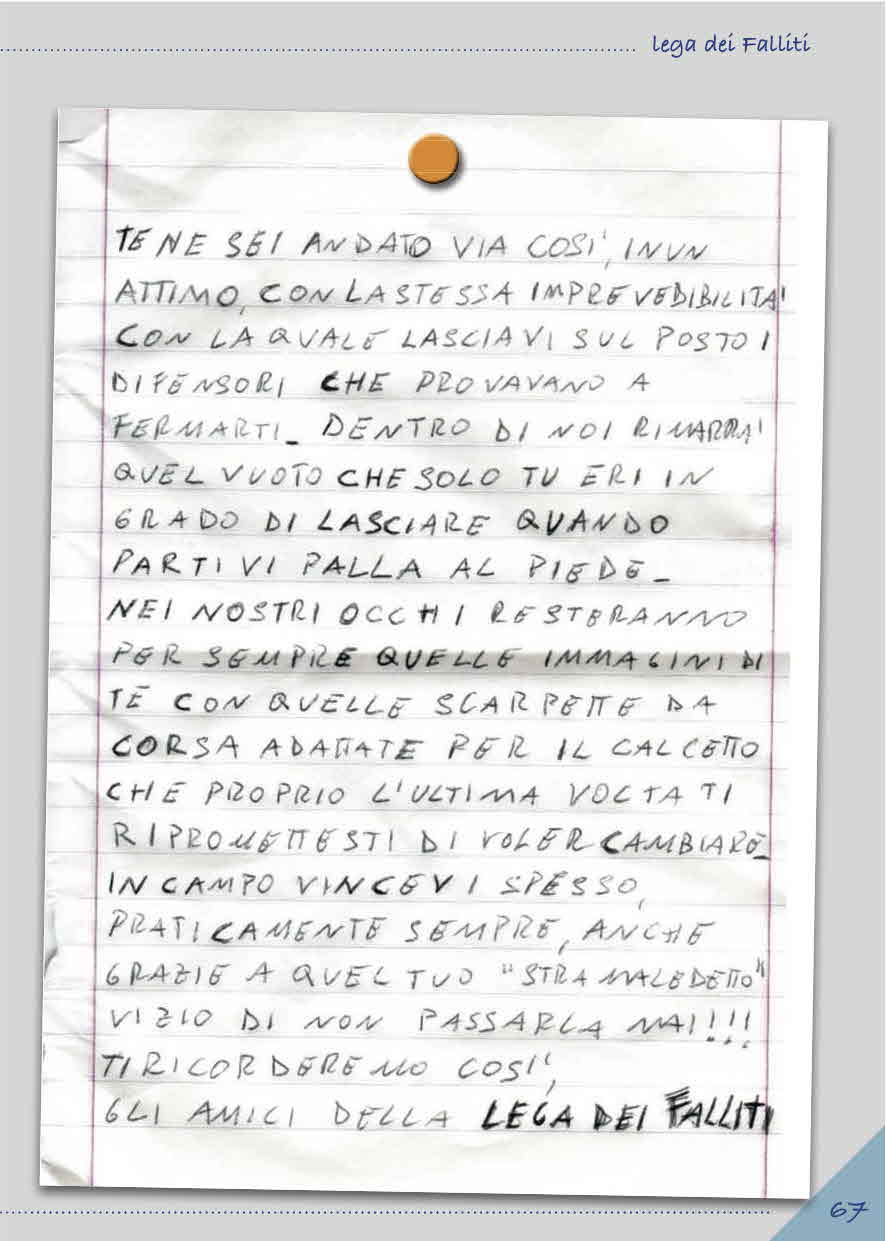 lega dei Falliti
TE NE SEI ANDATO VIA COSI', IN UN
ATTIMO, CON LA STESSA IMPREVEDIBILITA'
CON LA QUALE LASCIAVI SUL POSTO I
DIFENSORI CHE PROVAVANO A
FERMARTI_ DENTRO DI NOI RIMARRA'
QUEL VUOTO CHE SOLO TU ERI IN
GRADO DI LASCIARE QUANDO
PARTIVI PALLA AL PIEDE_
NEI NOSTRI OCCHI RESTERANNO
PER SEMPRE QUELLE IMMAGINI DI
TE CON QUELLE SCARPETTE DA
CORSA ADATTATE PER IL CALCETTO
CHE PROPRIO L'ULTIMA VOLTA TI
RIPROMETTESTI DI VOLER CAMBIARE_
IN CAMPO VINCEVI SPESSO,
PRATICAMENTE SEMPRE, ANCHE
GRAZIE A QUEL TUO "STRAMALEDETTO"
VIZIO DI NON PASSARLA MAI!!!
TI RICORDEREMO COSI',
GLI AMICI DELLA LEGA DEI FALLITI
67